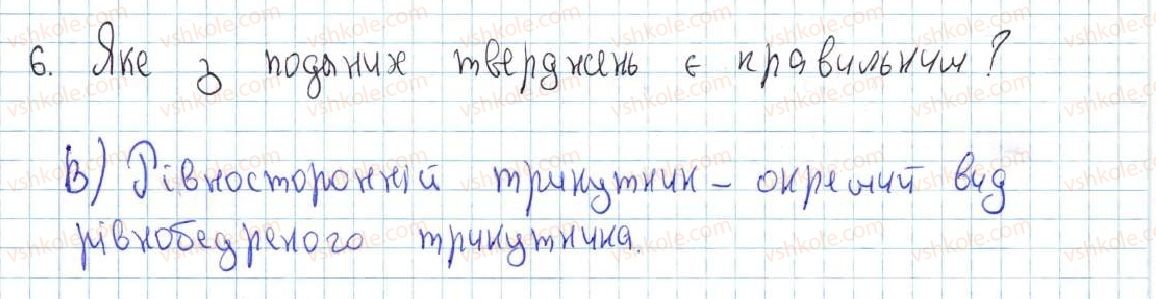 6. Яке з поданих тверджень є правильним?
В) Рівносторонній трикутник – окремий вид
рівнобедреного трикутника.